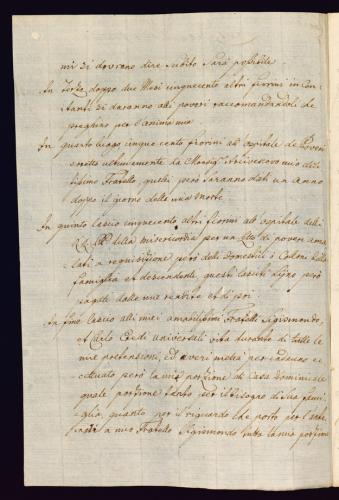 mi si dovrano dire subito sarà possibile
In terzo doppo due Mesi cinquecento altri fiorini in Con-
tanti si daranno alli poveri raccomandandoli che
preghino per l'anima mia
In quarto luogo cinque cento fiorini all'Ospitale de Poveri
eretto ultimamente da Monsig.r Arcivescovo mio
Fratello, questi però saranno dati un anno
doppo il giorno della mia Morte
In quinto lascio cinquecento altri fiorini all'Ospitale delli
della misericordia per un letto di poveri ama-
lati a requisizione però delli Domestici ò Coloni della
famiglia et descendente, questi lasciti però
pagati dalle mie rendite et di poi
In fine lascio alli miei amatissimi Fratelli Sigismondo,
et Carlo Eredi universali vita durante di tutte le
mie pretensioni, ed averi
però la mia porzione di Casa Dominicale
quale porzione tanto per il bisogno di sua fami-
glia, quanto per il riguardo che porto per
à mio Fratello Sigismondo tutta la mia porzione